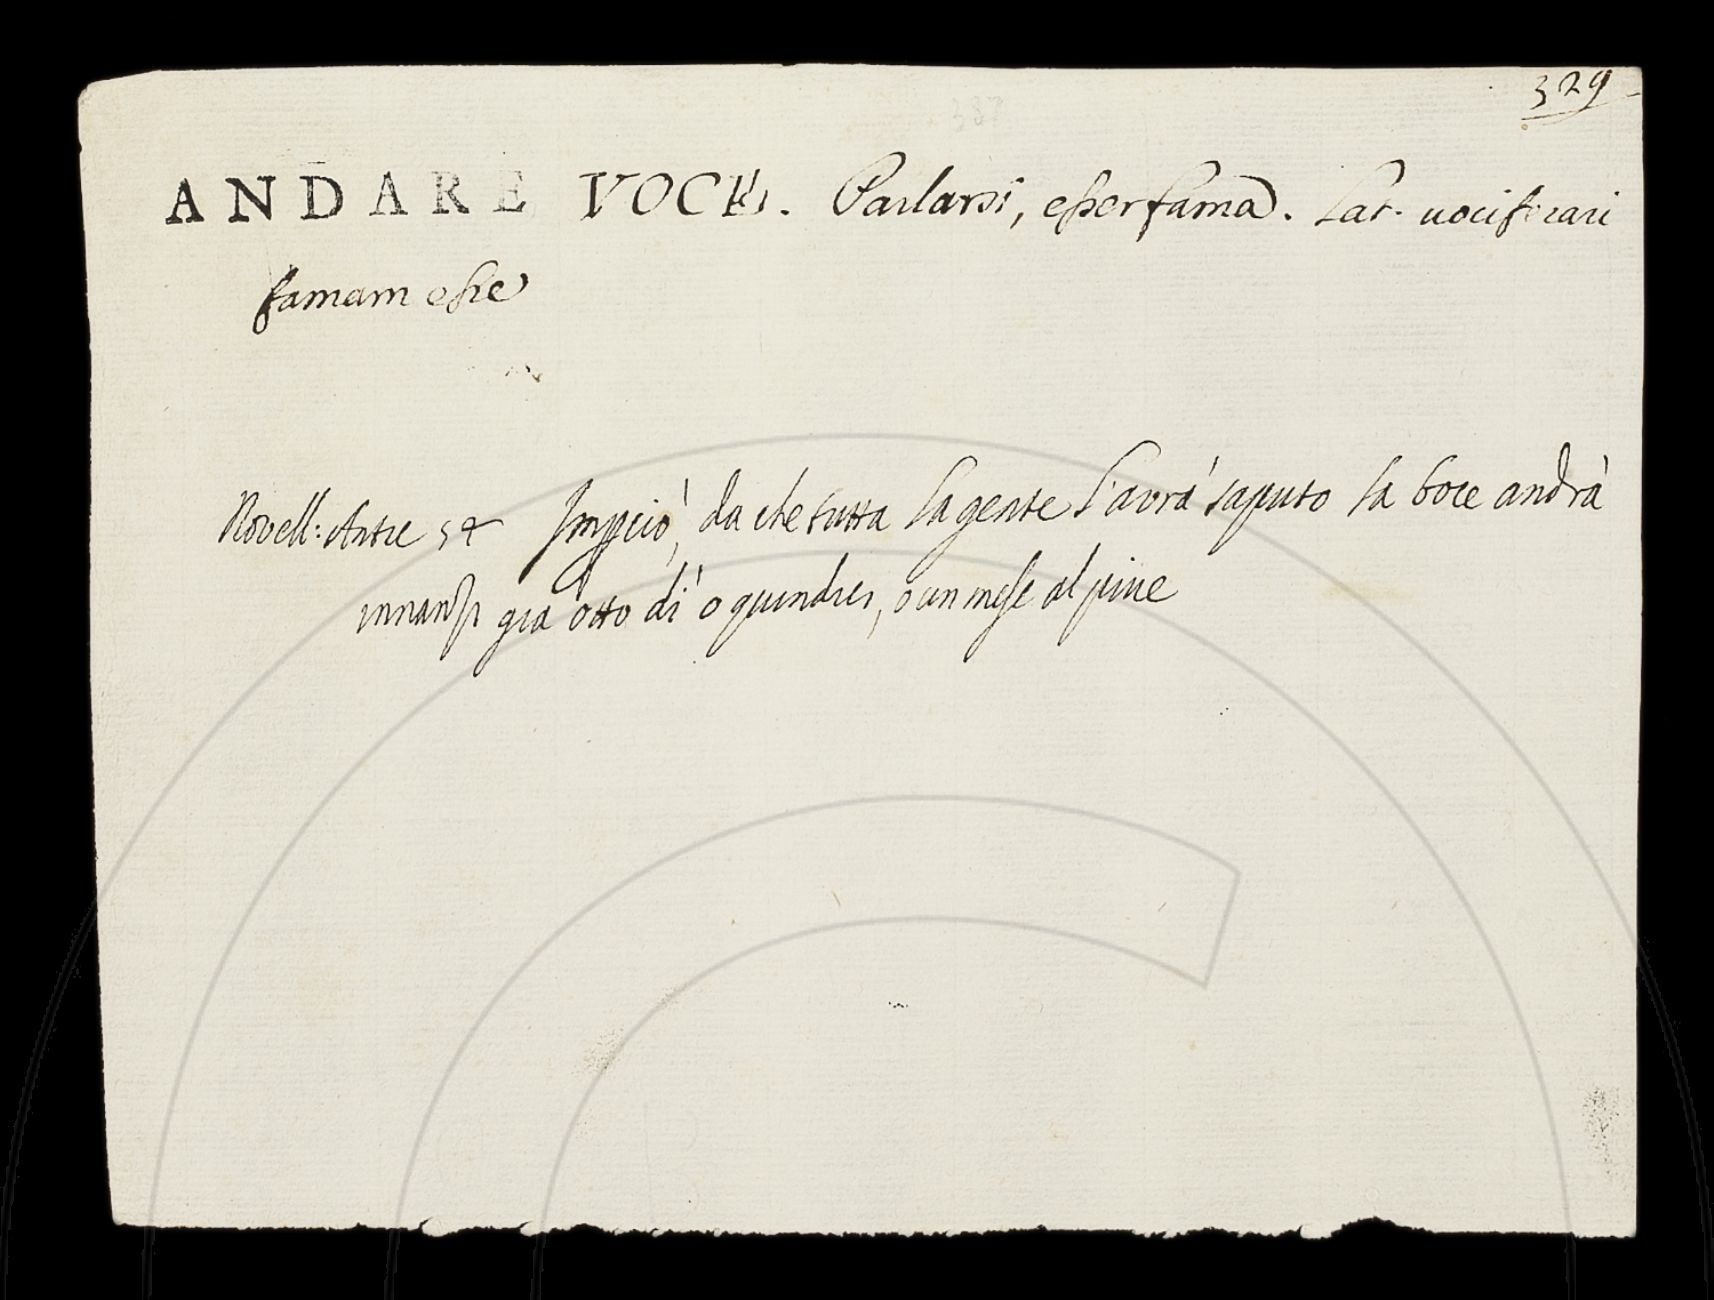 329
ANDARE VOCE. Parlarsi, esser fama. Lat. uociferari
famam esse
Novell: Antic 54 Impciò, da che tutta la gente l'avrà saputo la boce andrà
innanzi già otto dì o quindici, o un mese al piue